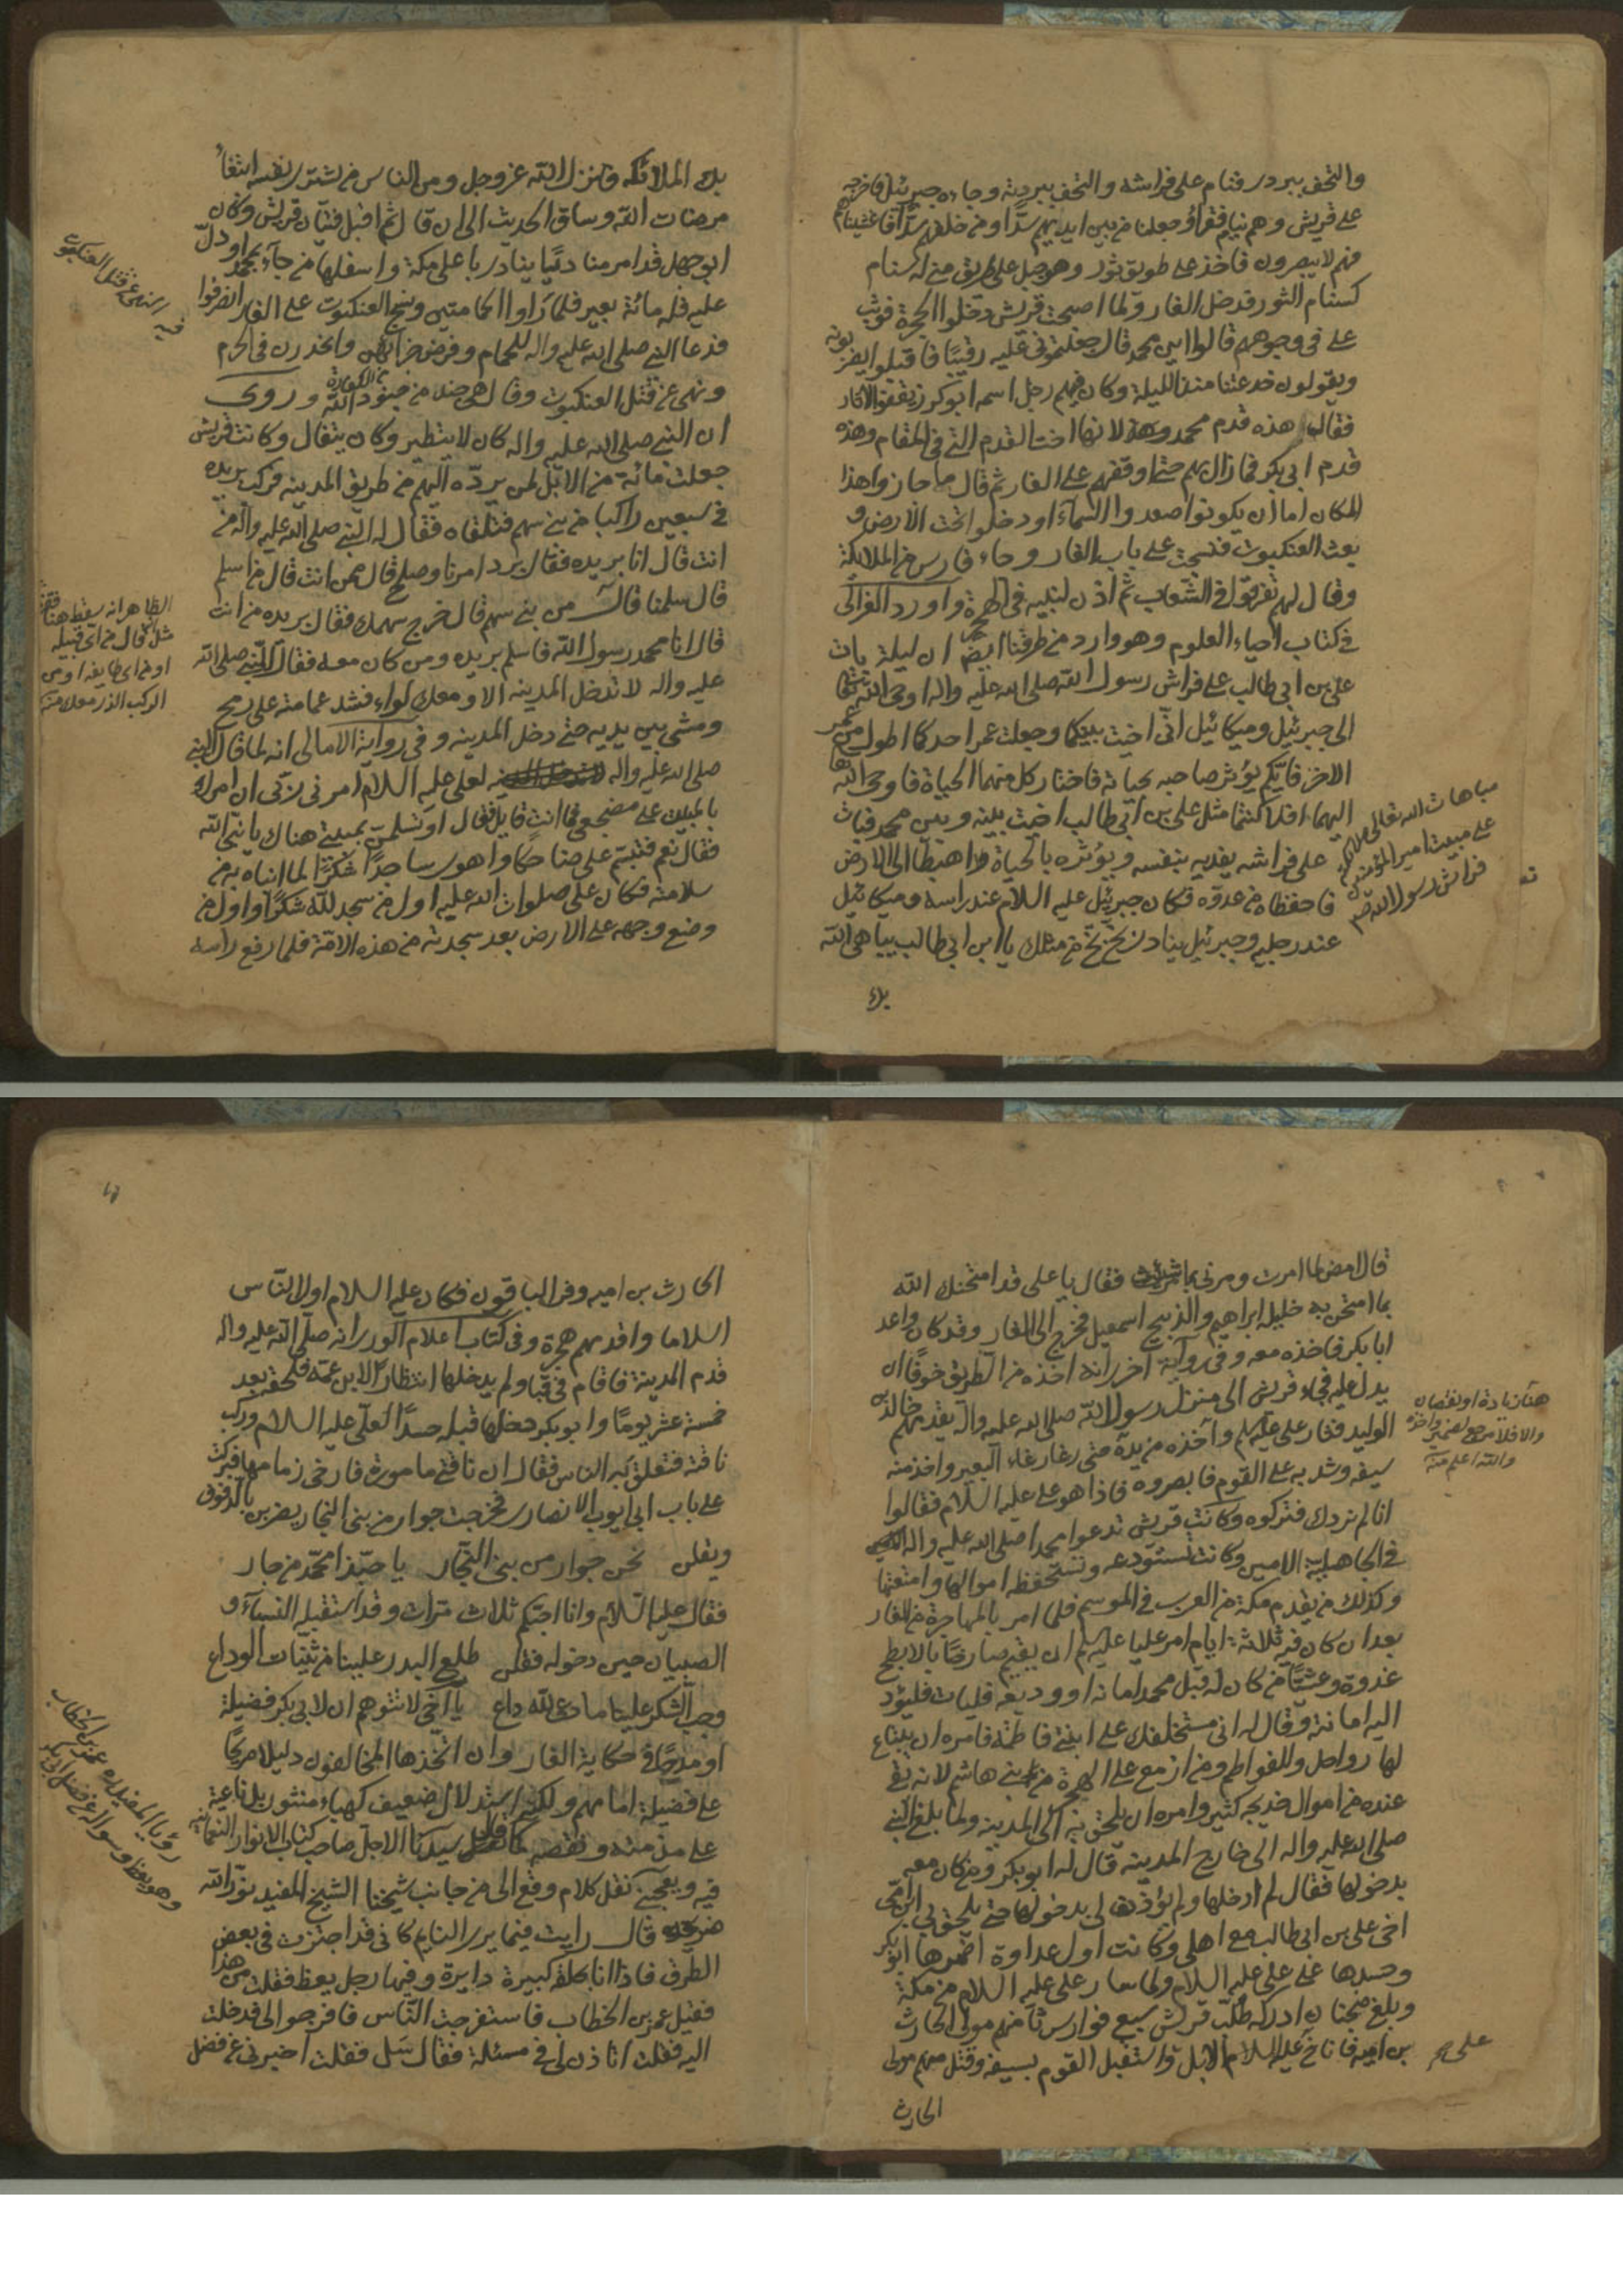 والتحف ببردي فنام على فراشه والتحف ببردته وجاءه جبرئيل فاخرجه
على قريش وهم نيام فقرأ وجعلنا من بين ايديهم سدّا ومن خلفهم سدّا فاغشيناهم
فهم لا يبصرون فاخذ على طريق ثور وهو جبل على طريق منى له سنام
كسنام الثور فدخل الغار ولما اصبحت قريش دخلوا الحجرة فوثب
على فى وجوههم قالوا اين محمد قال جعلتمونى عليه رقيبًا فاقبلوا يضربونه
ويقولون خدعتنا منذ الليلة وكان فيهم رجل اسمه ابو كرز يقفو الاثار
فقال هذه قدم محمد لانها اخت القدم التى فى المقام وهذه
قدم ابى بكر فما زال بهم حتى اوقفهم على الغار ثم قال ما جازوا هذا
المكان اما ان يكونوا صعدوا السماء او دخلوا تحت الارض و
بعث العنكبوت فنسجت على باب الغار وجاء فارس من الملائكة
وقال لهم تفرقوا فى الشعاب ثم اذن لنبيه فى الهجرة واورد الغزالى
فى كتاب احياء العلوم وهو وارد من طرقنا ايضا ان ليلة بات
على بن ابى طالب على فراش رسول الله صلى الله عليه واله اوحى الله تعالى
الى جبرئيل وميكائيل انى اخيت بينكما وجعلت عمر احدكما اطول من عمر
الاخر فايكم يؤثر صاحبه بحياته فاختار كل منهما الحياة فاوحى الله
اليهما افلا كنتما مثل على بن ابى طالب اخيت بينه وبين محمد فبات
على فراشه يفديه بنفسه ويؤثره بالحياة اهبطا الى الارض
فاحفظاه من عدوه فكان جبرئيل عليه السلام عند راسه وميكائيل
عند رجليه وجبرئيل ينادى بخ بخ من مثلك يا ابن ابى طالب يباهى الله
مباهات الله تعالى
على مبيت امير المؤمنين
فراش رسول الله ص
بك
بك الملائكة فانزل الله عز وجل ومن الناس من يشترى نفسه ابتغاء
مرضات الله وساق الحديث الى ان قال ثم اقبل فتيان قريش وكان
ابو جهل قد امر مناديًا ينادى باعلى مكة واسفلها من جاء بمحمد او دلّ
عليه فله مائة بعير فلما راوا الحمامتين ونسج العنكبوت على الغار انصرفوا
فدعا النبى صلى الله عليه واله للحمام وفرض جزائهن وانحدرن فى الحرم
ونهى عن قتل العنكبوت وقال هى جند من جنود الله وروى
ان النبى صلى الله عليه واله كان لا يتطير وكان يتفال وكانت قريش
جعلت مائة من الابل لمن يردّه اليهم من طريق المدينه فركب بريده
فى سبعين راكبا من بنى سهم فتلقاه فقال له النبى صلى الله عليه واله من
انت قال انا بريده فقال برد امرنا وصلح قال ممن انت قال من اسلم
قال سلمنا قال من بنى سهم قال خرج سهمك فقال بريده من انت
قال انا محمد رسول الله فاسلم بريده ومن كان معه فقال للنبى صلى الله
عليه واله لا تدخل المدينه الا ومعك لواء فشد عمامته على رمح
ومشى بين يديه حتى دخل المدينه وفى رواية الامالى انه لما قال النبى
صلى الله عليه واله لعلى عليه السلام امرنى ربى ان امرك
بالمبيت على مضجعى فما انت قايل فقال او تسلمنّ بمبيتى هناك يا نبى الله
فقال نعم فتبسّم على ضاحكا واهوى ساجدًا شكرًا لما انباه به من
سلامته فكان على صلوات الله عليه اول من سجد لله شكرًا واول من
وضع وجهه على الارض بعد سجدته من هذه الامة فلما رفع راسه
فيه النهى عن قتل العنكبوت
الظاهر انه سقط هنا
مثل قال من اى قبيله
او من اى طايفه او من
الركب الذى معك منه
قال امض لما امرت ومرنى بما شئت فقال يا على قد امتحنك الله
بما امتحن به خليله ابراهيم والذبيح اسمعيل فخرج الى الغار وقد كان واعد
ابا بكر فاخذه معه وفى رواية اخرى انه اخذه من الطريق خوفًا ان
يدل عليه فجاء قريش الى منزل رسول الله صلى الله عليه واله يقدمهم خالد بن
الوليد فثار على عليهم واخذه من يده حتى رغا رغاء البعير واخذ منه
سيفه وشد به على القوم فابصروه فاذا هو على عليه السلام فقالوا
انا لم نردك فتركوه وكانت قريش تدعوا محمدا صلى الله عليه واله
فى الجاهلية الامين وكانت تستودعه وتستحفظه اموالها وامتعتها
وكذلك من يقدم مكة من العرب فى الموسم فلما امر بالمهاجرة من الغار
بعد ان كان فيه ثلاثة ايام امر عليا عليه السلام ان يقيم صارخًا بالابطح
غدوة وعشيّا من كان له قبل محمد امانة او وديعه فليات فليؤد
اليه امانته وقال له انى مستخلفك على ابنتى فاطمة فامره ان يبتاع
لها رواحل وللفواطم ومن ازمع على الهجرة من بنى هاشم لانه بقى
عنده من اموال خديجه كثير وامره ان يلحق به الى المدينه ولما بلغ النبى
صلى الله عليه واله الى خارج المدينه قال له ابو بكر ومن كان معه
بدخولها فقال لم ادخلها ولم يؤذن لى بدخولها حتى يلحق بى ابن عمى
اخى على بن ابى طالب مع اهلى وكانت اول عداوة اضمرها ابو بكر
وحسدها على على عليه السلام ولما سار على عليه السلام من مكة
وبلغ ضجنان ادركه طلب قريش سبع فوارس ثامنهم مولى الحارث
بن اميه فاناخ عليه السلام الابل واستقبل القوم بسيفه وقتل منهم مولى
هنا زيادة او نقصان
والله اعلم منه
الحارث
الحارث بن اميه وفر الباقون فكان عليه السلام اول الناس
اسلاما واقدمهم هجرة وفى كتاب اعلام الورى انه صلى الله عليه واله
قدم المدينة فاقام فى قبا ولم يدخلها انتظارًا لابن عمه فلحقه بعد
خمسة عشر يومًا وابو بكر دخلها قبله حسدًا لعلى عليه السلام وركب
ناقته فتعلق به الناس فقال ان ناقتى مامورة فارخى زمامها فبركت
على باب ابى ايوب الانصارى فخرجت جوار من بنى النجار يضربن بالدفوف
ويقلن نحن جوار من بنى النجّار يا حبّذا محمّد من جار
فقال عليه السلام وانا احبكم ثلاث مرات وقد استقبله النساء و
الصبيان حين دخوله فقلن طلع البدر علينا من ثنيات الوداع
وجب الشكر علينا ما دعى لله داع يا اخى لا تتوهم ان لابى بكر فضيلة
او مدحًا فى حكاية الغار وان اتخذها المخالفون دليلا صريحًا
على فضيلة امامهم ولكنه استدلال ضعيف كهباء منثور
سيدنا الاجل صاحب كتاب الانوار النعمانية
فيه ويعجبنى نقل كلام وقع الى من جانب شيخنا الشيخ المفيد نور الله
ضريحه قال رايت فيما يرى النايم كانى قد اجتزت فى بعض
الطرق فاذا انا بحلقة كبيرة دايرة وفيها رجل يعظ فقلت من هذا
فقيل عمر بن الخطاب فاستفرجت الناس فافرجوا لى فدخلت
اليه فقلت اتاذن لى فى مسئلة فقال سَل فقلت اخبرنى عن فضل
رؤيا المفيد ره عمر بن الخطاب
وهو يعظ وسواله عن فضل ابى بكر